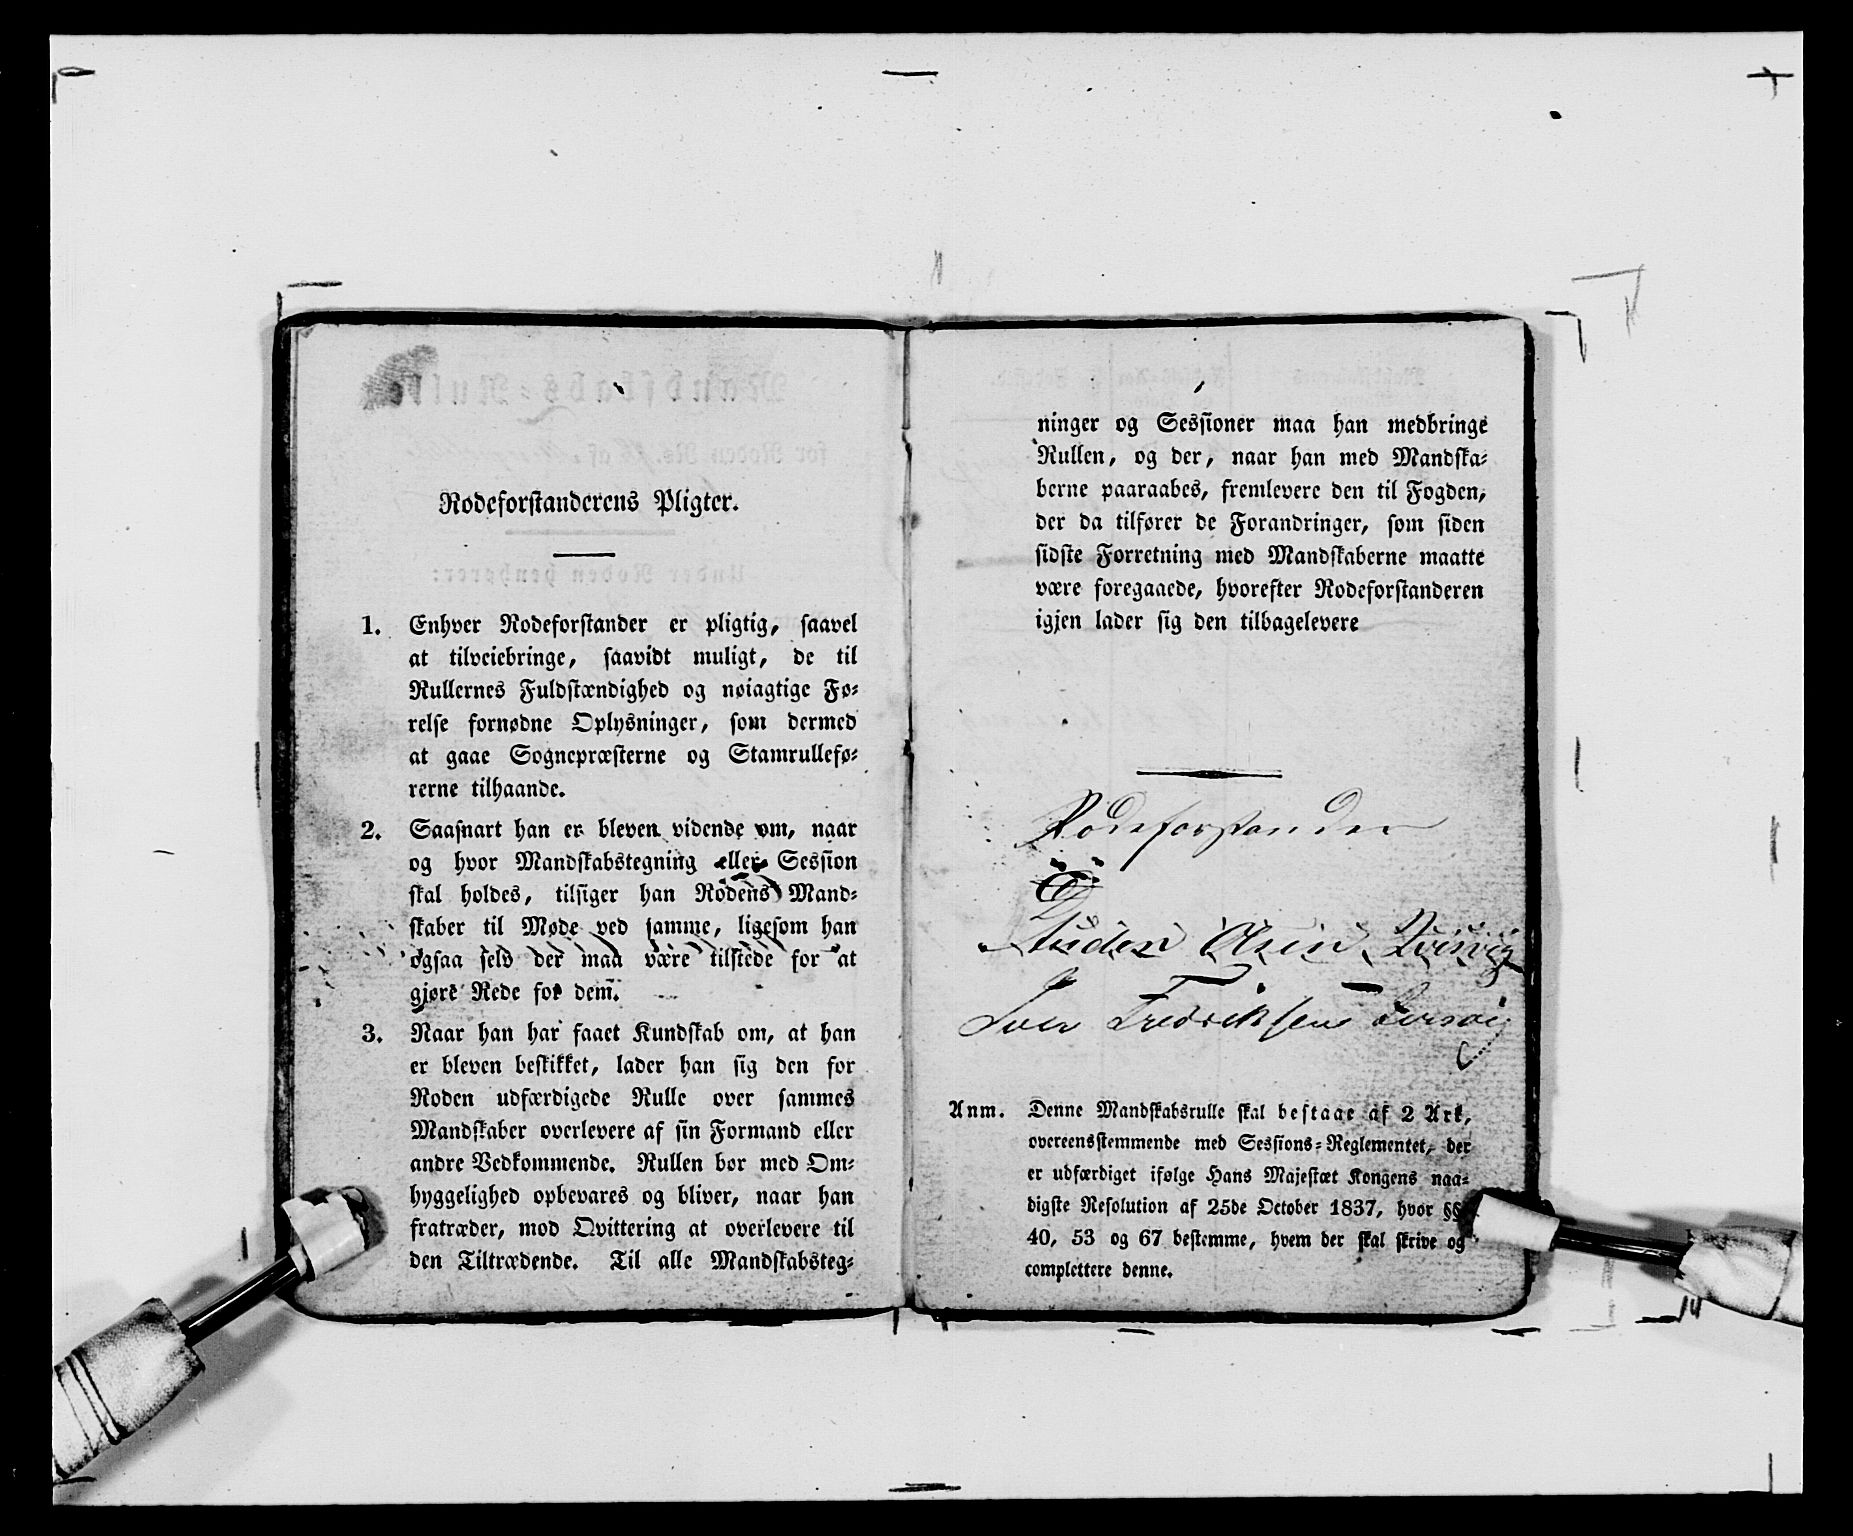 Rodeforstanderens Pligter.
1. Enhver Rodeforstander er pligtig, saavel
at tilveiebringe, saavidt muligt, de til
Rullernes Fuldstændighed og nøiagtige Fø-
relse fornødne Oplysninger, som dermed
at gaae Sognepræsterne og Stamrullefø-
rerne tilhaande.
2. Saasnart han er bleven vidende om, naar
og hvor Mandskabstegning eller Session
skal holdes, tilsiger han Rodens Mand-
skaber til Møde ved samme, ligesom han
ogsaa selv der maa være tilstede for at
gjøre Rede for dem.
3. Naar han har faaet Kundskab om, at han
er bleven beskikket, lader han sig den for
Roden udfærdigede Rulle over sammes
Mandskaber overlevere af sin Formand eller
andre Vedkommende. Rullen bør med Om-
hyggelighed opbevares og bliver, naar han
fratræder, mod Qvittering at overlevere til
den Tiltrædende. Til alle Mandskabsteg-
ninger og Sessioner maa han medbringe
Rullen, og der, naar han med Mandska-
berne paaraabes, fremlevere den til Fogden,
der da tilfører de Forandringer, som siden
sidste Forretning med Mandskaberne maatte
være foregaaede, hvorefter Rodeforstanderen
igjen lader sig den tilbagelevere
Rodeforstander
Iver Fredriksen
Anm. Denne Mandskabsrulle skal bestaae af 2 Ark,
overeensstemmende med Sessions-Reglementet, der
er udfærdiget ifølge Hans Majestæt Kongens naa-
digste Resolution af 25de October 1837, hvor §§
40, 53 og 67 bestemme, hvem der skal skrive og
complettere denne.